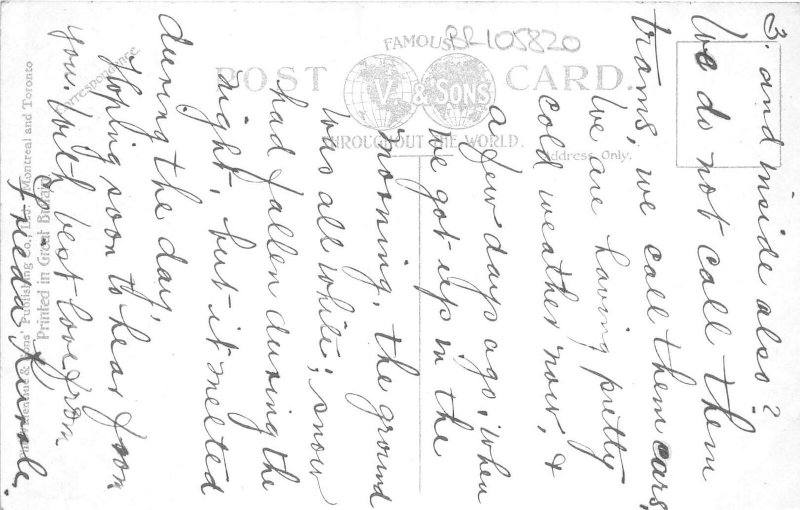 3. and inside also?
We do not call them
trams, we call them cars,
We are having pretty
cold weather now, &
a few days ago, when
we got up in the
morning, the ground
was all white; snow
had fallen during the
night, but it melted
during the day.
Hoping soon to hear from
you. With best love from.
Frieda
BR105820
FAMOUS
POST CARD.
V. & SONS
THROUGHOUT THE WORLD.
Correspondence.
Address Only.
& Sons Publishing Co., Ltd. Montreal and Toronto
Printed in Great Britain